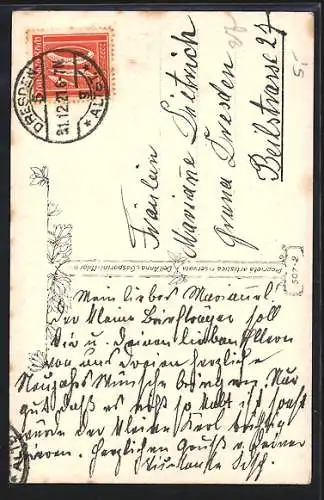 DRESDEN
31.12.21.6-7N
* ALTST.
Fräulein
Marianne Dietrich
Gruna Dresden
Beilstrasse 27
5.-
Proprietà artistica riservata Dell'Anna & Gasparini Milano
508-2
Mein liebes Mariannel.
Der kleine Briefträger soll
Dir u. Deinen lieben Eltern
von uns dreien herzliche
Neujahrs Wünsche bringen. Nur
gut daß es nicht so kalt ist sonst
würde der kleine Kerl
frieren. Herzlichen Gruß v. Deiner